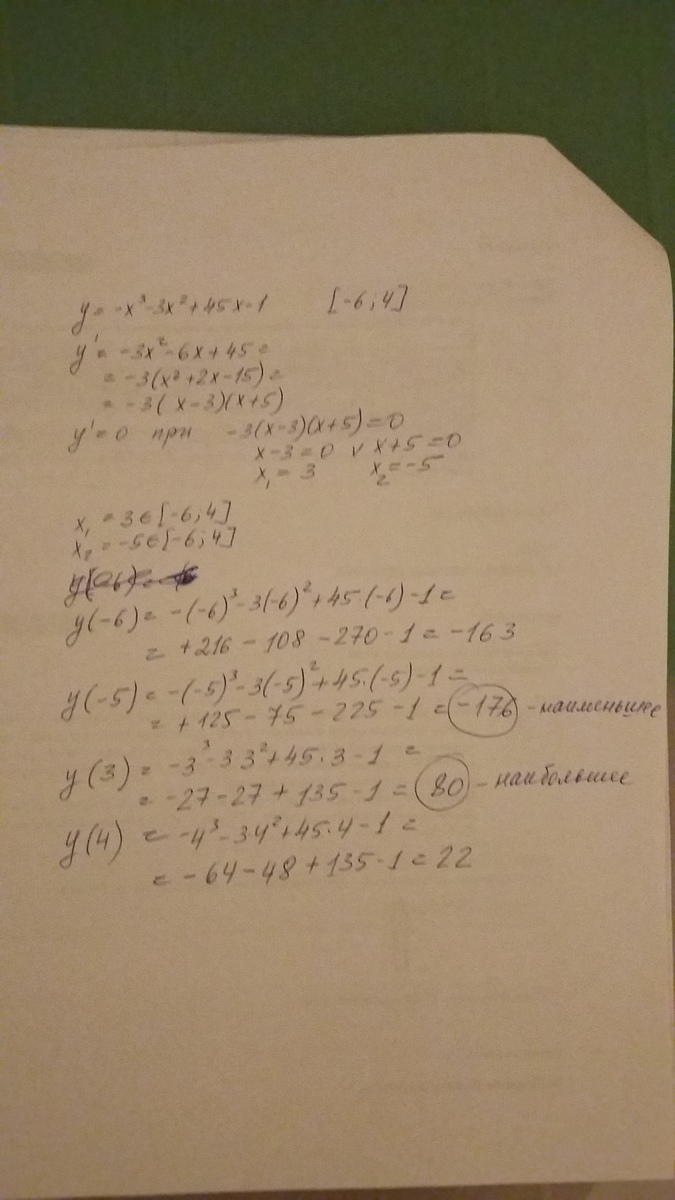 y = -x³-3x²+45x-1 [-6;4]
y' = -3x²-6x+45=
= -3(x²+2x-15)=
= -3(x-3)(x+5)
y'=0 при -3(x-3)(x+5)=0
x-3=0 v x+5=0
x₁=3 x₂=-5
x₁ = 3∈[-6;4]
x₂ = -5∈[-6;4]
y(-6) = -(-6)³-3(-6)²+45·(-6)-1=
= +216-108-270-1=-163
y(-5) = -(-5)³-3(-5)²+45·(-5)-1=
= +125-75-225-1=-176 - наименьшее
y(3) = -3³-3 3²+45·3-1 =
= -27-27+135-1=80 - наибольшее
y(4) = -4³-3 4²+45·4-1=
= -64-48+135-1=22